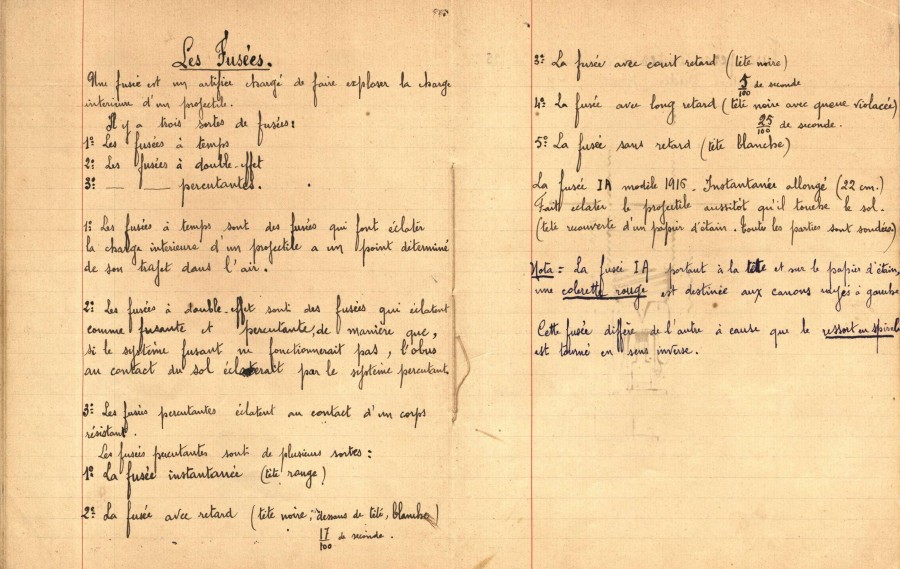 Les Fusées.
Une fusée est un artifice chargé de faire exploser la charge
interieure d'un projectile.
Il y a trois sortes de fusées:
1º Les fusées à temps
2º Les fusées à double effet
3º — — percutantes.
1º Les fusées à temps sont des fusées qui font éclater
la charge interieure d'un projectile a un point déterminé
de son trajet dans l'air.
2º Les fusées à double effet sont des fusées qui éclatent
comme fusante et percutante, de manière que,
si le système fusant ne fonctionnerait pas, l'obus
au contact du sol éclaterait par le système percutant.
3º Les fusées percutantes éclatent au contact d'un corps
résistant.
Les fusées percutantes sont de plusieurs sortes:
1º La fusée instantanée (tête rouge)
2º La fusée avec retard (tête noire, dessous de tête, blanche)
17/100 de seconde.
3º La fusée avec court retard (tête noire)
5/100 de seconde
4º La fusée avec long retard (tête noire avec queue violacée)
25/100 de seconde.
5º La fusée sans retard (tête blanche)
La fusée IA modèle 1916. Instantanée allongé (22 cm.)
Fait éclater le projectile aussitôt qu'il touche le sol.
(tête recouverte d'un papier d'étain. Toutes les parties sont soudées)
Nota = La fusée IA portant à la tête et sur le papier d'étain,
une colerette rouge est destinée aux canons rayés à gauche
Cette fusée diffère de l'autre à cause que le ressort en spirale
est tourné en sens inverse.